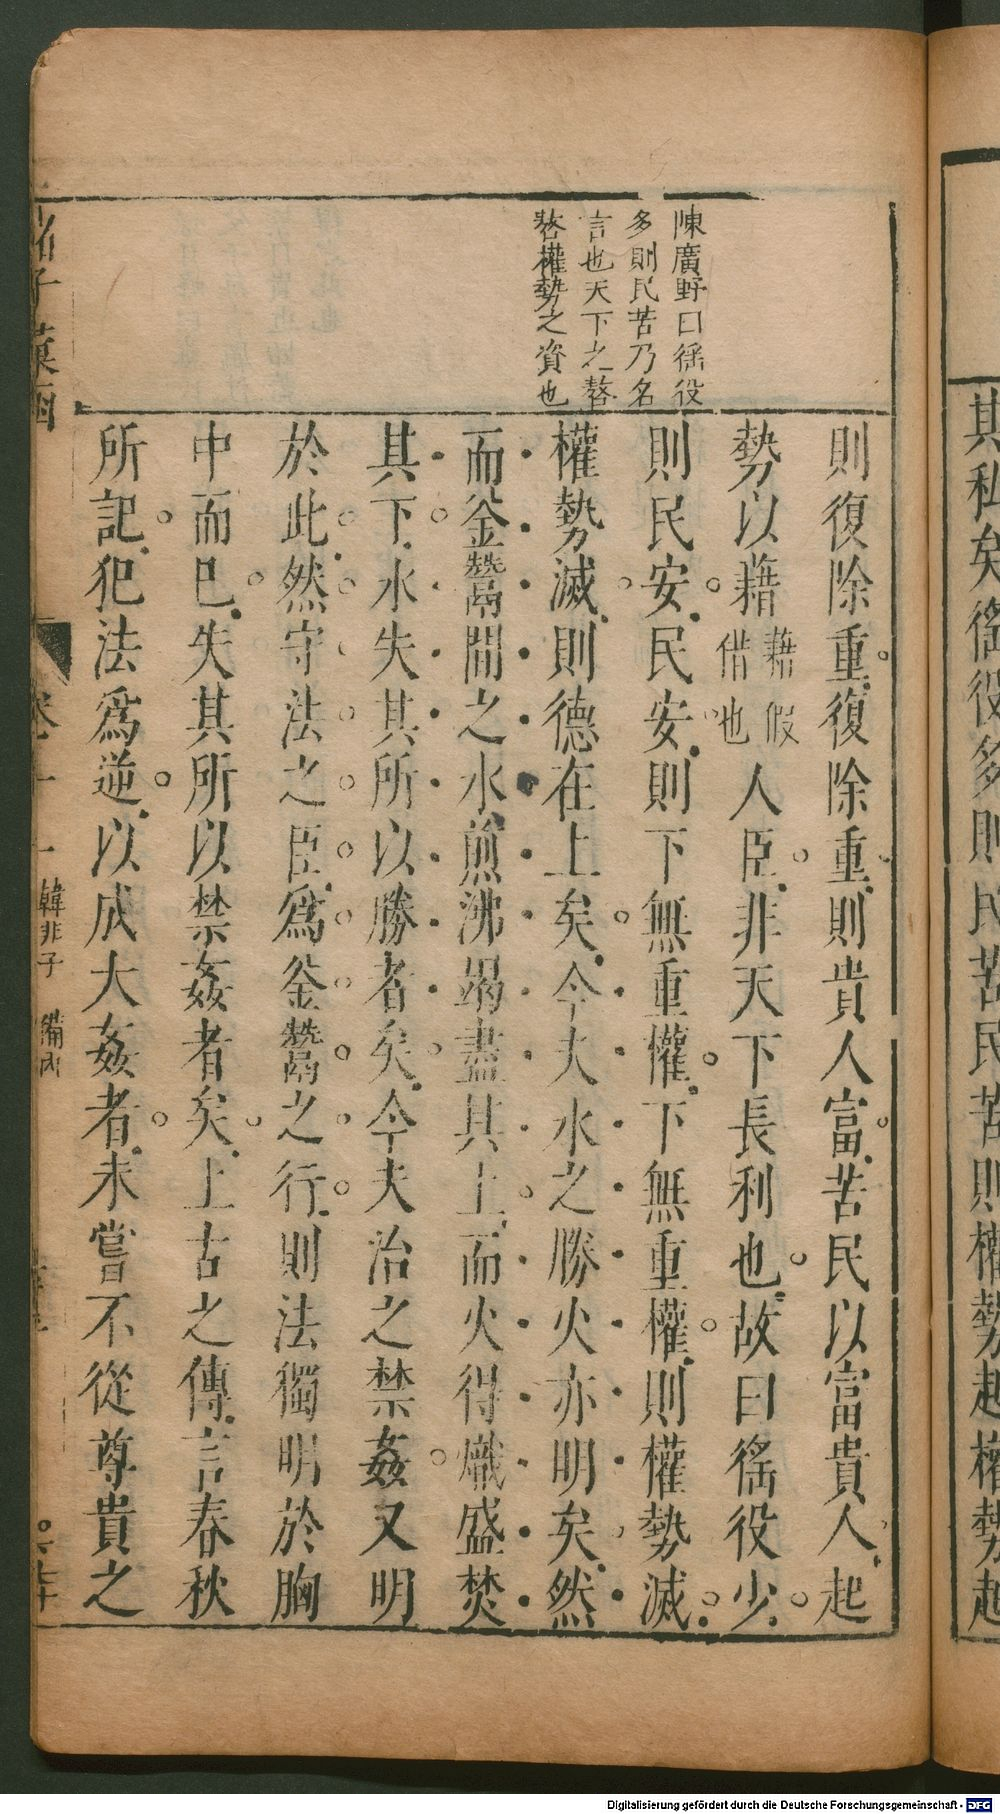 其私矣徭役多則民苦民苦則權勢起權勢起
陳廣野曰徭役
多則民苦乃名
言也天下之
權勢之資也
則復除重復除重則貴人富苦民以富貴人起
勢以藉藉假借也人臣非天下長利也故曰徭役少
則民安民安則下無重權下無重權則權勢滅
權勢滅則德在上矣今夫水之勝火亦明矣然
而釜鬵間之水煎沸竭盡其上而火得熾盛焚
其下水失其所以勝者矣今夫治之禁姦又明
於此然守法之臣爲釜鬵之行則法獨明於胸
中而已失其所以禁姦者矣上古之傳言春秋
所記犯法爲逆以成大姦者未嘗不從尊貴之
韓非子 備內
Digitalisierung gefördert durch die Deutsche Forschungsgemeinschaft - DFG